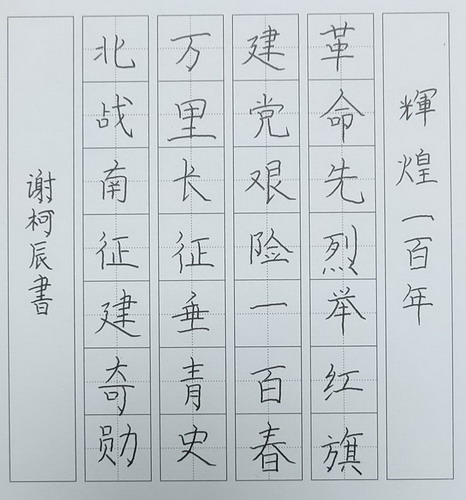 輝煌一百年
革命先烈举红旗
建党艰险一百春
万里长征垂青史
北战南征建奇勋
谢柯辰書